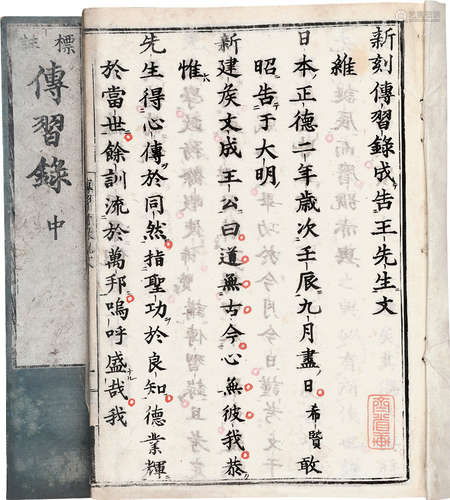 新刻傳習錄成告王先生文
維
日本正德二年歲次壬辰九月盡日希賢敢
昭告于大明
新建矦文成王公曰道無古今心無彼我恭
惟
先生得心傳於同然指聖功於良知德業輝
於當世餘訓流於萬邦嗚呼盛哉我
標註
傳習錄 中